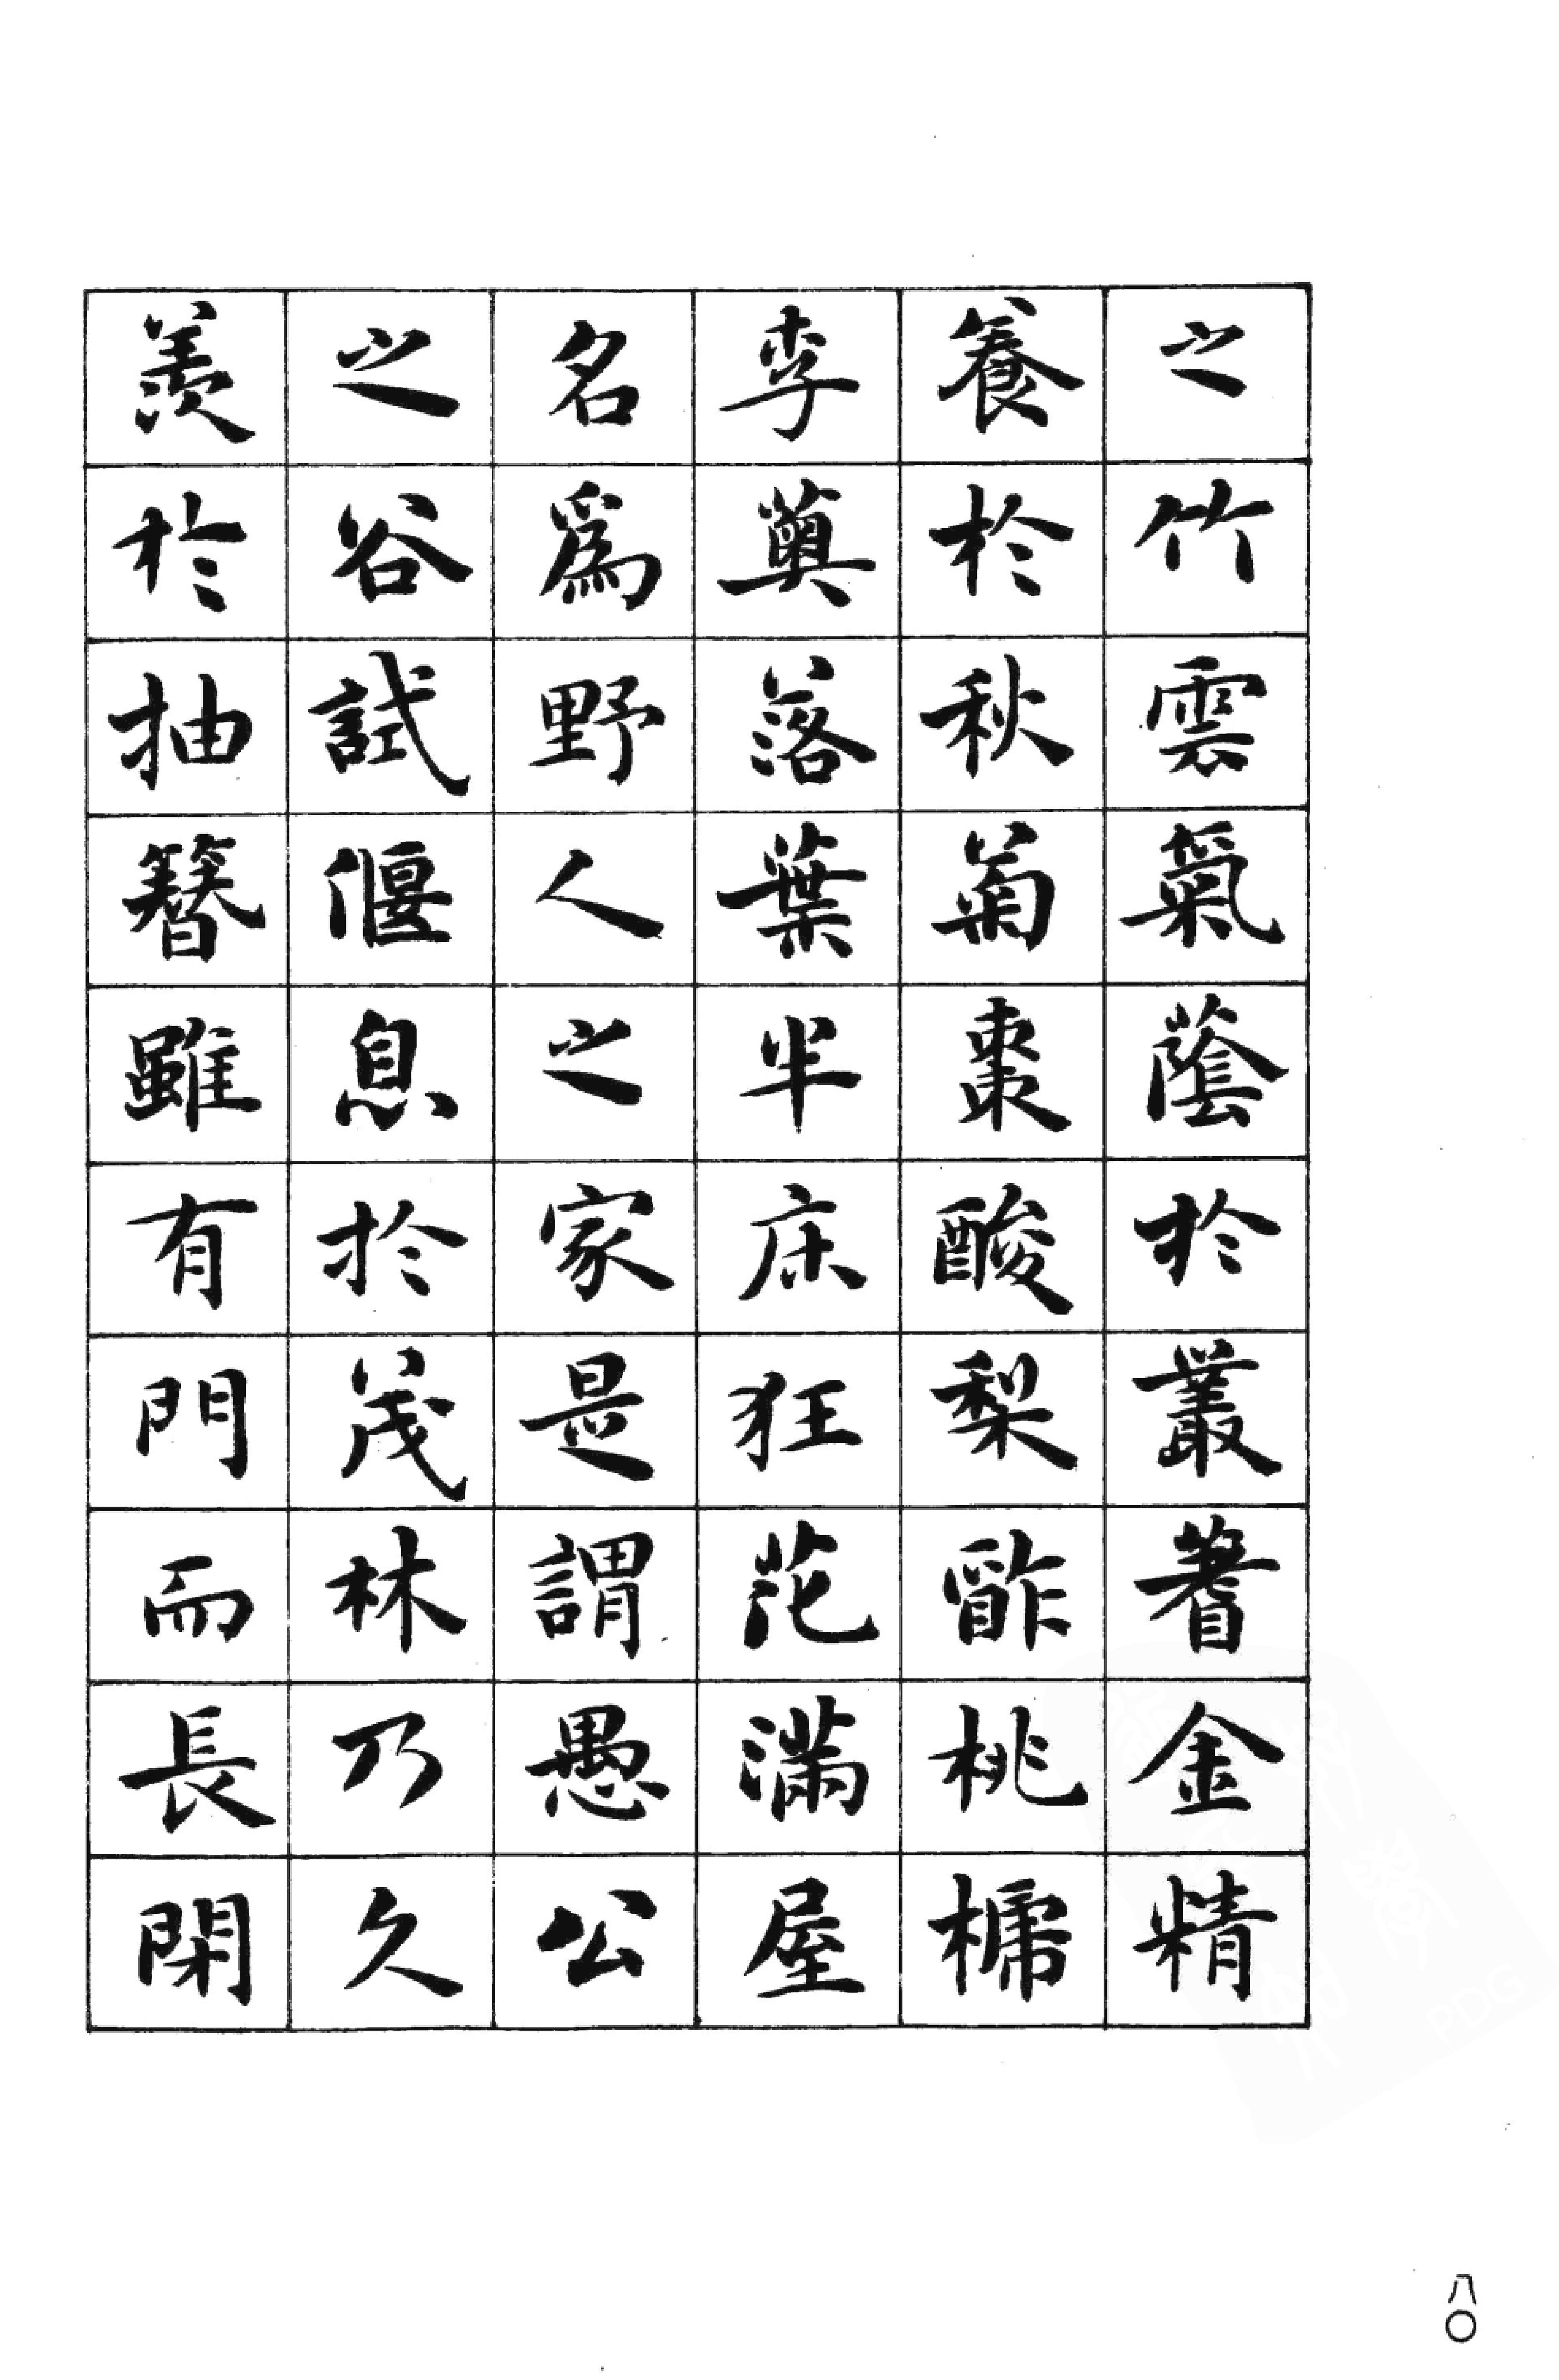 之竹雲氣蔭於叢蓍金精
養於秋菊棗酸梨酢桃榹
李薁落葉半床狂花滿屋
名爲野人之家是謂愚公
之谷試偃息於茂林乃久
羨於抽簪雖有門而長閑
八〇